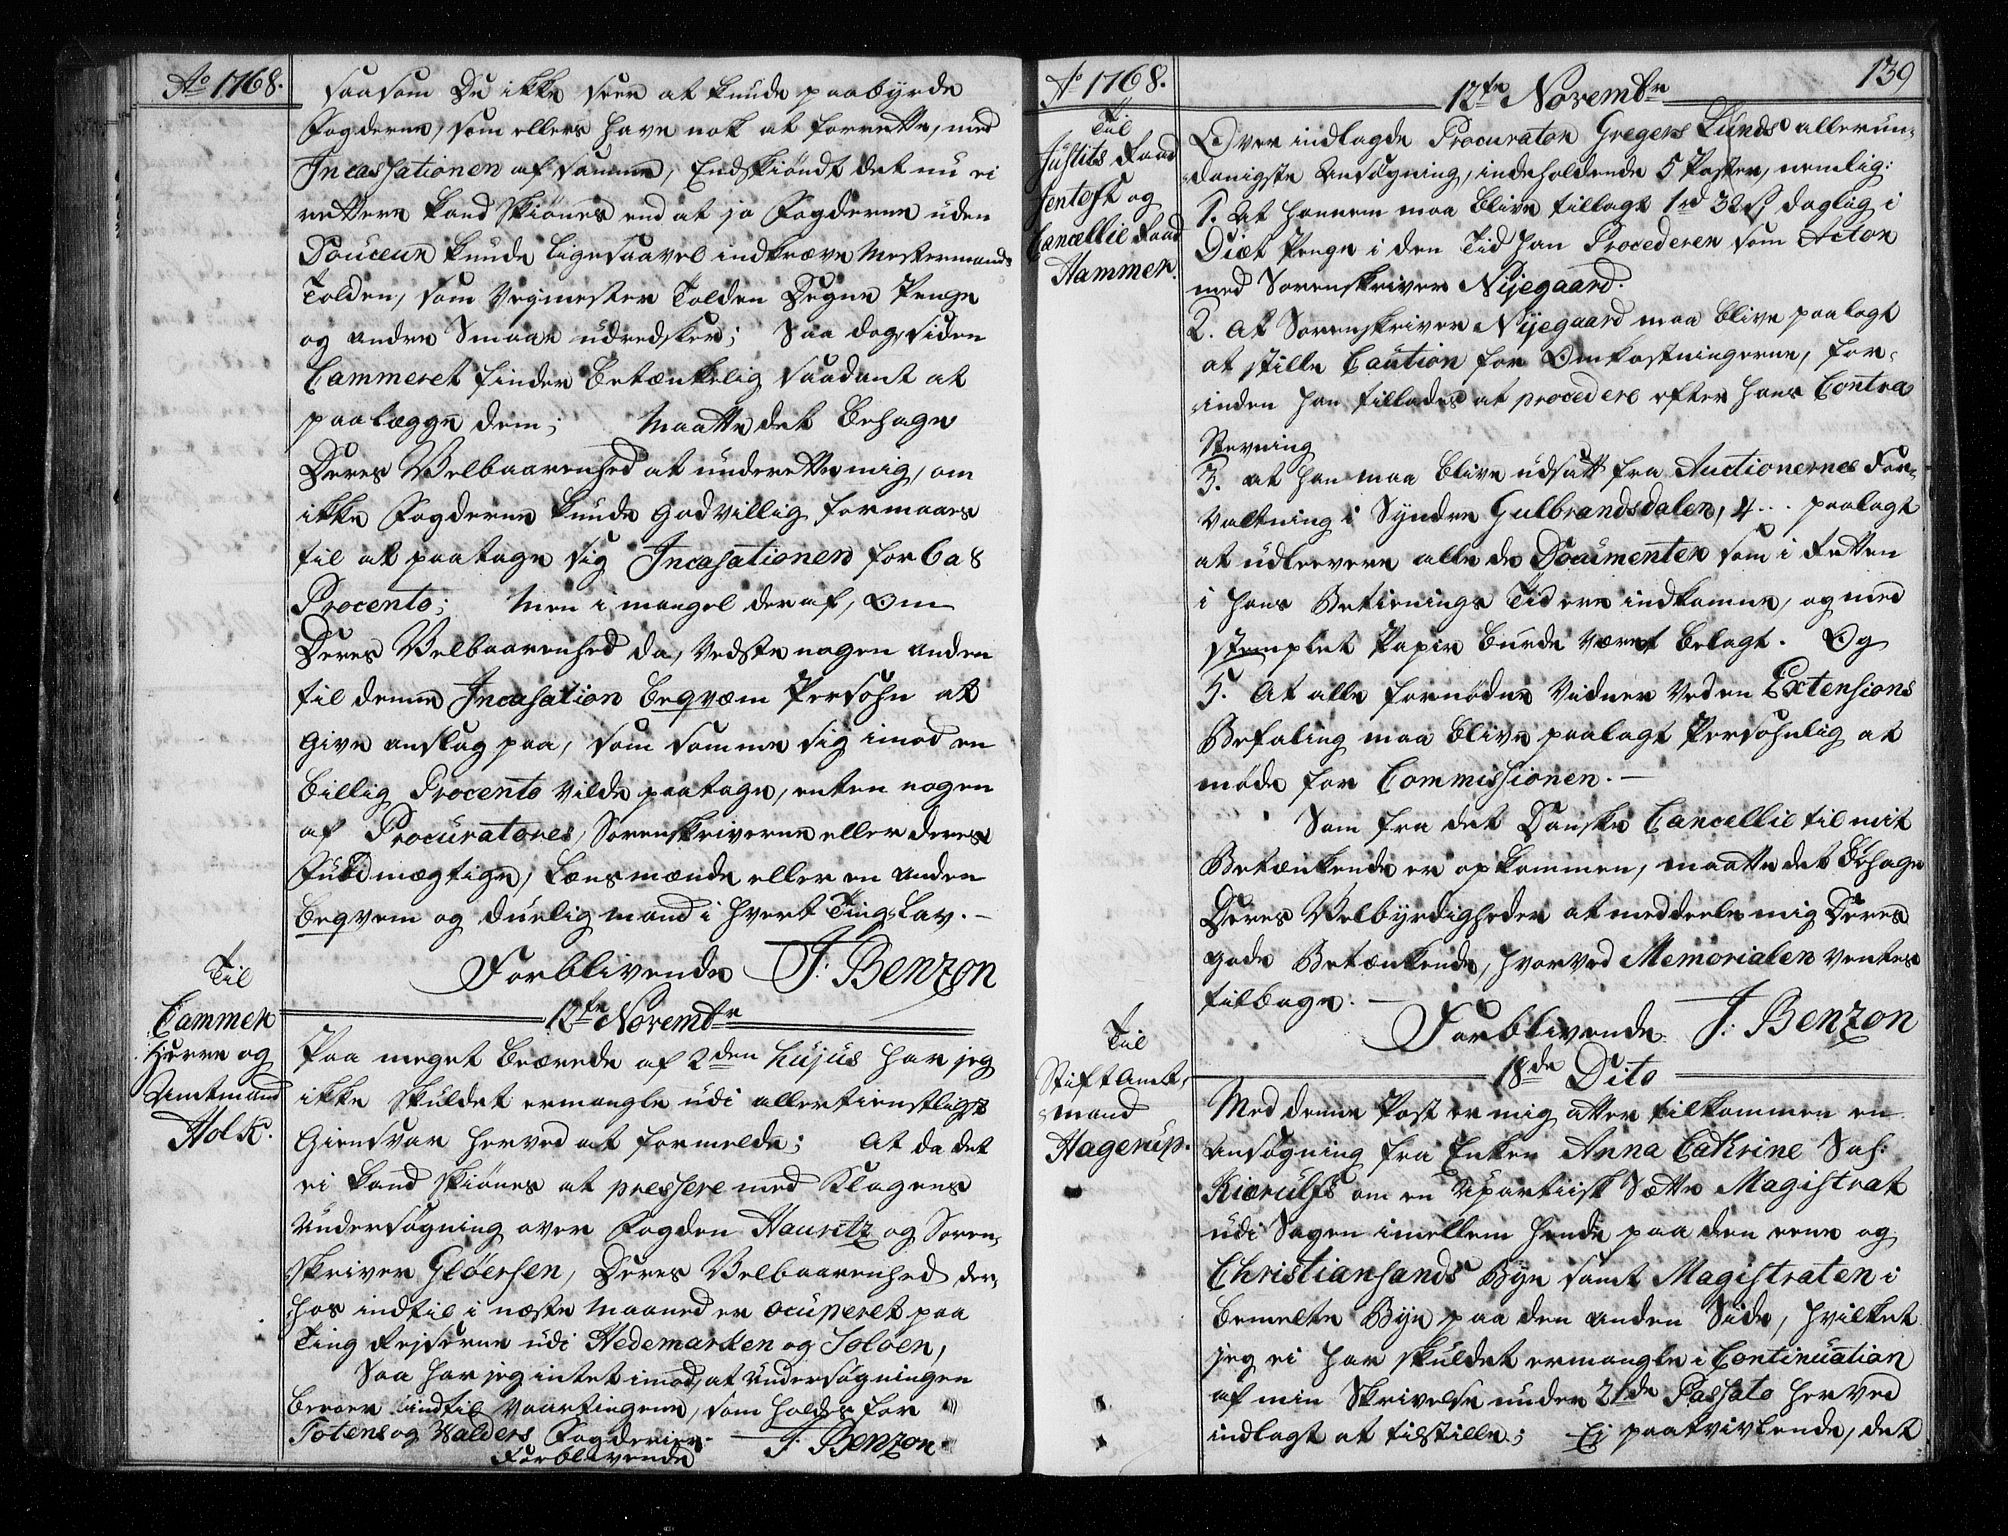 Ao 1768.
saasom De ikke seer at kunde paabyrde
Fogderne, som ellers have nok at forrette, med
Incassationen af samme, Endskiøndt det nu ei
rettere kand skiønes end at jo Fogderne uden
Douceur kunde ligesaavel indkræve Mestermands
Tolden, som Vejmester Tolden Degne Penge
og andre Smaae udredsler; Saa dog, siden
Cammeret finder Betænkelig saadant at
paalægge dem; Maatte det Behage
Deres Velbaarenhed at underrette mig, om
ikke Fogderne kunde godvillig formaaes
til at paatage sig Incasationen for 6 a 8
Procento; Men i mangel deraf, Om
Deres Velbaarenhed da, vidste nogen anden
til denne Incasation beqvæm Persohn at
give anslag paa, som samme sig imod en
billig Procento vilde paatage, enten nogen
af Procuratores, Sorenskriverne eller deres
Fuldmægtige, Lensmænde eller en anden
beqvem og duelig mand i hvert Ting-Lav. –
Forblivende J: Benzon
12te Novembr
Til
Cammer
Herre og
Amtmand
Holk.
Paa meget beærede af 2den hujus har jeg
ikke skuldet ermangle udi allertienstligst
Giensvar herved at formelde; At da det
ei kand skiønes at pressere med Klagens
Undersøgning over Fogden Hauritz og Soren-
skriver Gløersen, Deres Velbaarenhed der-
hos indtil i næste Maaned er ocuperet paa
Ting Reiserne udi Hedemarken og Soløen,
Saa har jeg intet imod, at Undersøgningen
beroer indtil Vaartingene, som holdes for
Totens og Walders Fogderier.
Forblivende J: Benzon.
Ao 1768.
139
12te Novembr
Til
Justits Raad
Jentoft og
Cancellie Raad
Hammer.
Over indlagde Procurator Gregers Lunds allerun-
danigste Ansøgning, indeholdende 5 Poster, nemlig:
1. At hannem maa blive tillagt 1rd 32s daglig i
Diæt Penge i den Tid han Procederer som Actor
med Sorenskriver Nijegaard.
2. At Sorenskriver Nijegaard maa blive paalagt
at stille Caution for Omkostningerne, for-
inden han tillades at procedere efter hans Contra
Stevning
3. at han maa blive udsatt fra Auctionernes For-
valtning i Syndre Gulbrandsdalen, 4... paalagt
at udleevere alle de Documenter som i Retten
i hans Betienings Tid ere indkomne, og med
stemplet Papir burde været belagt. Og
5. At alle fornødne Vidner ved en Extensions
Befaling maa blive paalagt Persohnlig at
møde for Commissionen. –
Som fra det Danske Cancellie til mit
Betænkende er opkommen, maatte det Behage
Deres Velbyrdigheder at meddeele mig Deres
gode Betænkende, hvorved Memorialen ventes
tilbage. –
Forblivende J: Benzon
18de Dito
Til
Stiftamt-
mand
Hagerup.
Med denne Post er mig atter tilkommen en
Ansøgning fra Enken Anna Cathrine Sal:
Kierulfs om en Upartiisk Sætte Magistrat
udi Sagen imellem hende paa den eene og
Christiansands Bye samt Magistraten i
bemelte Bye paa den anden Side, hvilket
jeg ei har skuldet ermangle i Continuation
af min Skrivelse under 21de Passato herved
indlagt at tilstille; Ej paatvivlende, det